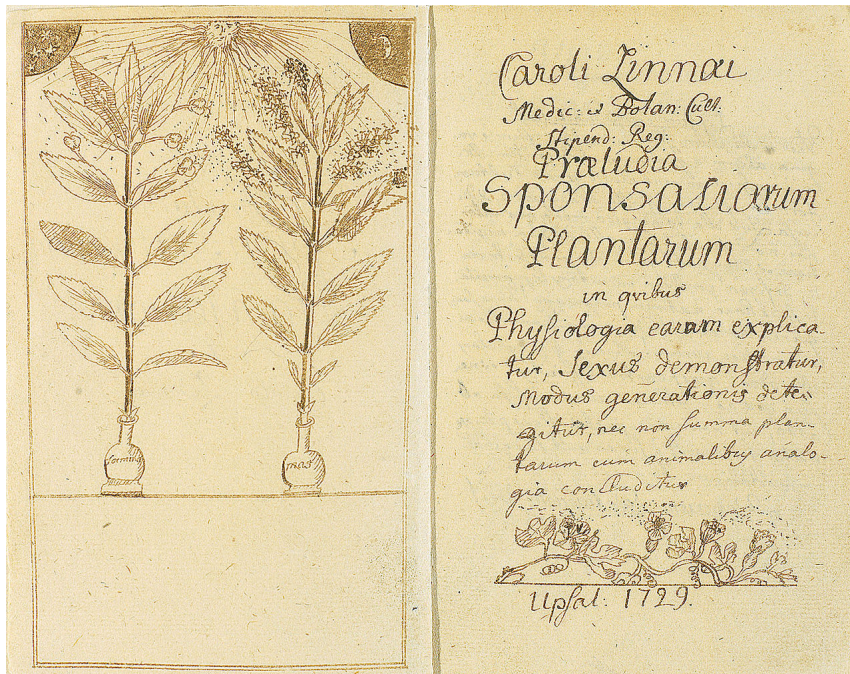 femina
mas
Caroli Linnæi
Medic: & Botan: Cult:
Stipend: Reg:
Præludia
Sponsaliorum
Plantarum
in qvibus
Physiologia earum explica-
tur, Sexus demonstratur,
Modus generationis dete-
gitur, nec non summa plan-
tarum cum animalibus analo-
gia concluditur
Upsal: 1729.